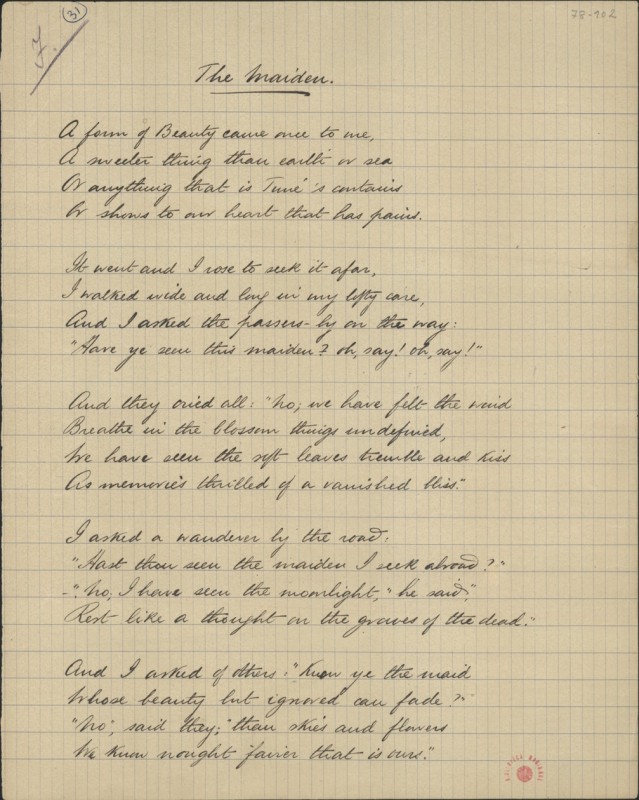 31
F.
78-102
The Maiden.
A form of Beauty came once to me,
A sweeter thing than earth or sea
Or anything that is Time's contains
Or shows to our heart that has pains.
It went and I rose to seek it afar,
I walked wide and long in my lofty care,
And I asked the passers-by on the way:
"Have ye seen this maiden? oh, say! oh, say!"
And they cried all: "No; we have felt the wind
Breathe in the blossom things undefined,
We have seen the soft leaves tremble and kiss
As memories thrilled of a vanished bliss."
I asked a wanderer by the road:
"Hast thou seen the maiden I seek abroad?"
-"No; I have seen the moonlight," he said,"
Rest like a thought on the graves of the dead."
And I asked of others: "Know ye the maid
Whose beauty but ignored can fade?"
"No", said they; "than skies and flowers
We know nought fairer that is ours."